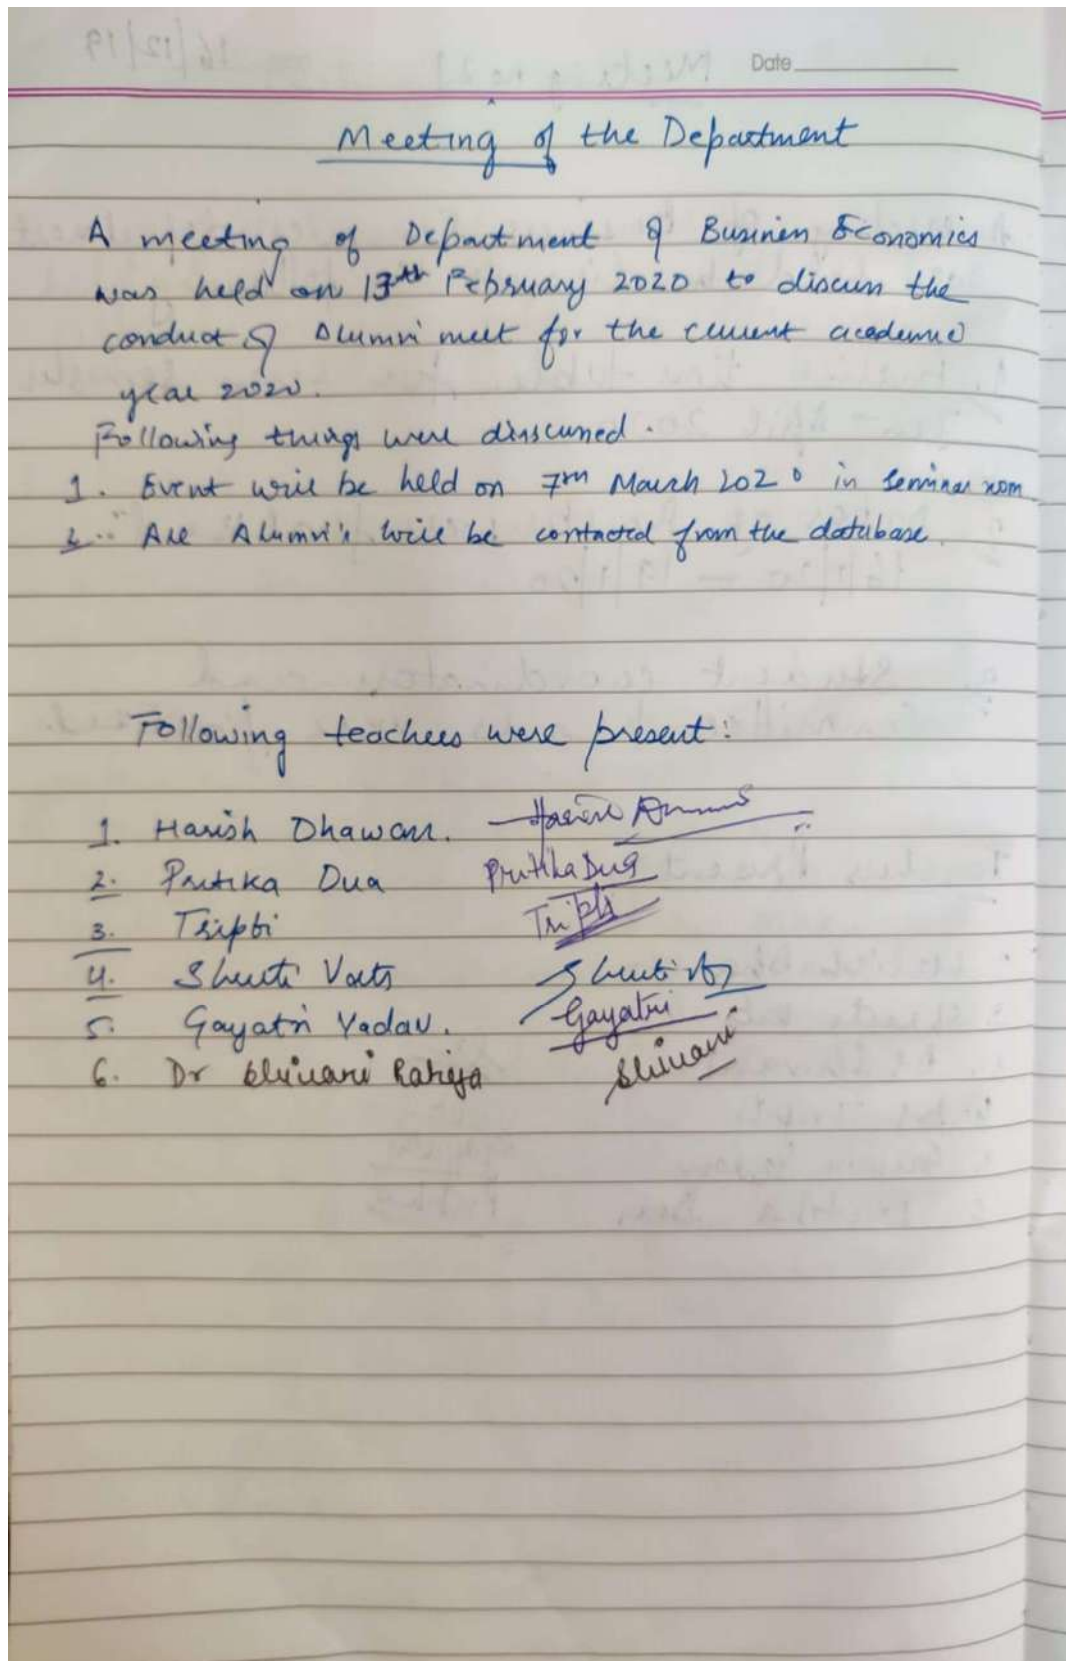 Date
Meeting of the Department
A meeting of Department of Business Economics
was held on 13th February 2020 to discuss the
conduct of Alumni meet for the current academic
year 2020.
Following things were disscussed.
1. Event will be held on 7th March 2020 in Seminar room
2. All Alumni's will be contacted from the database.
Following teachers were present:
1. Harish Dhawan. Harish
2. Pritika Dua Pritika Dua
3. Tripti Tripti
4. Shruti Vats Shruti
5. Gayatri Yadav. Gayatri
6. Dr Shivani Raheja Shivani